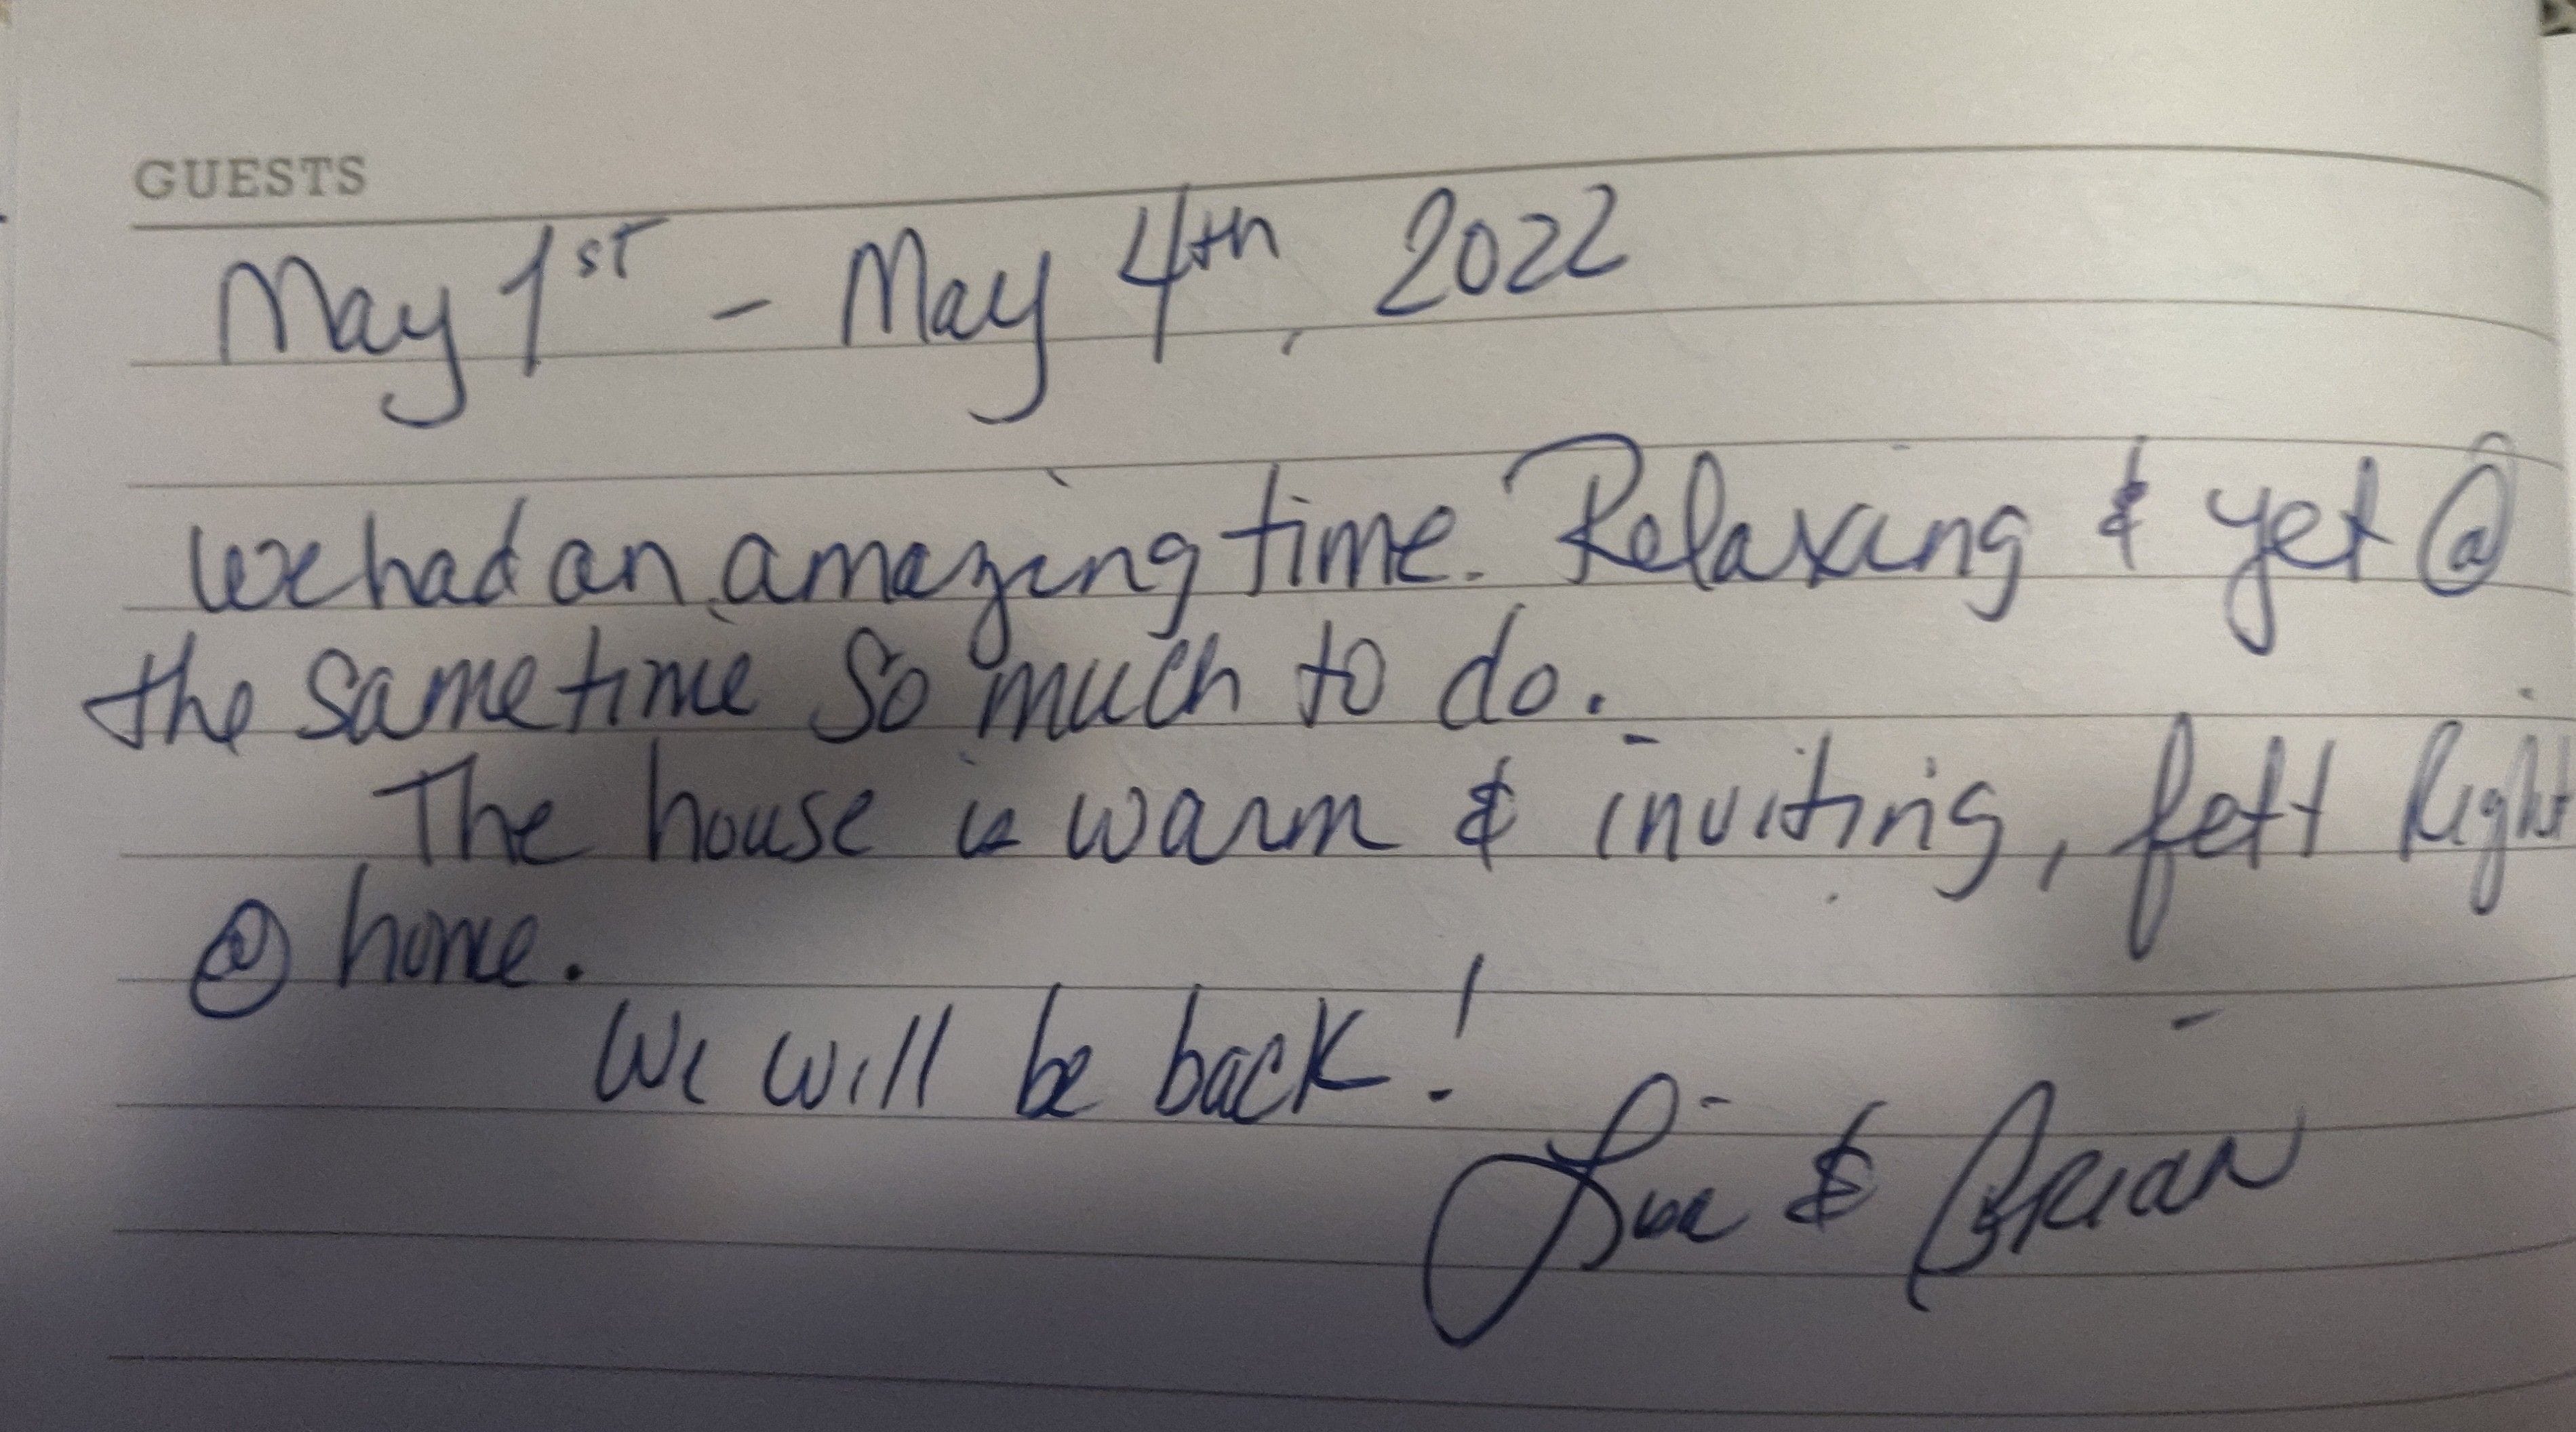 GUESTS
May 1st - May 4th, 2022
We had an amazing time. Relaxing & yet @
the same time so much to do.
The house is warm & inviting, felt Right
@ home.
We will be back!
Lisa & Brian